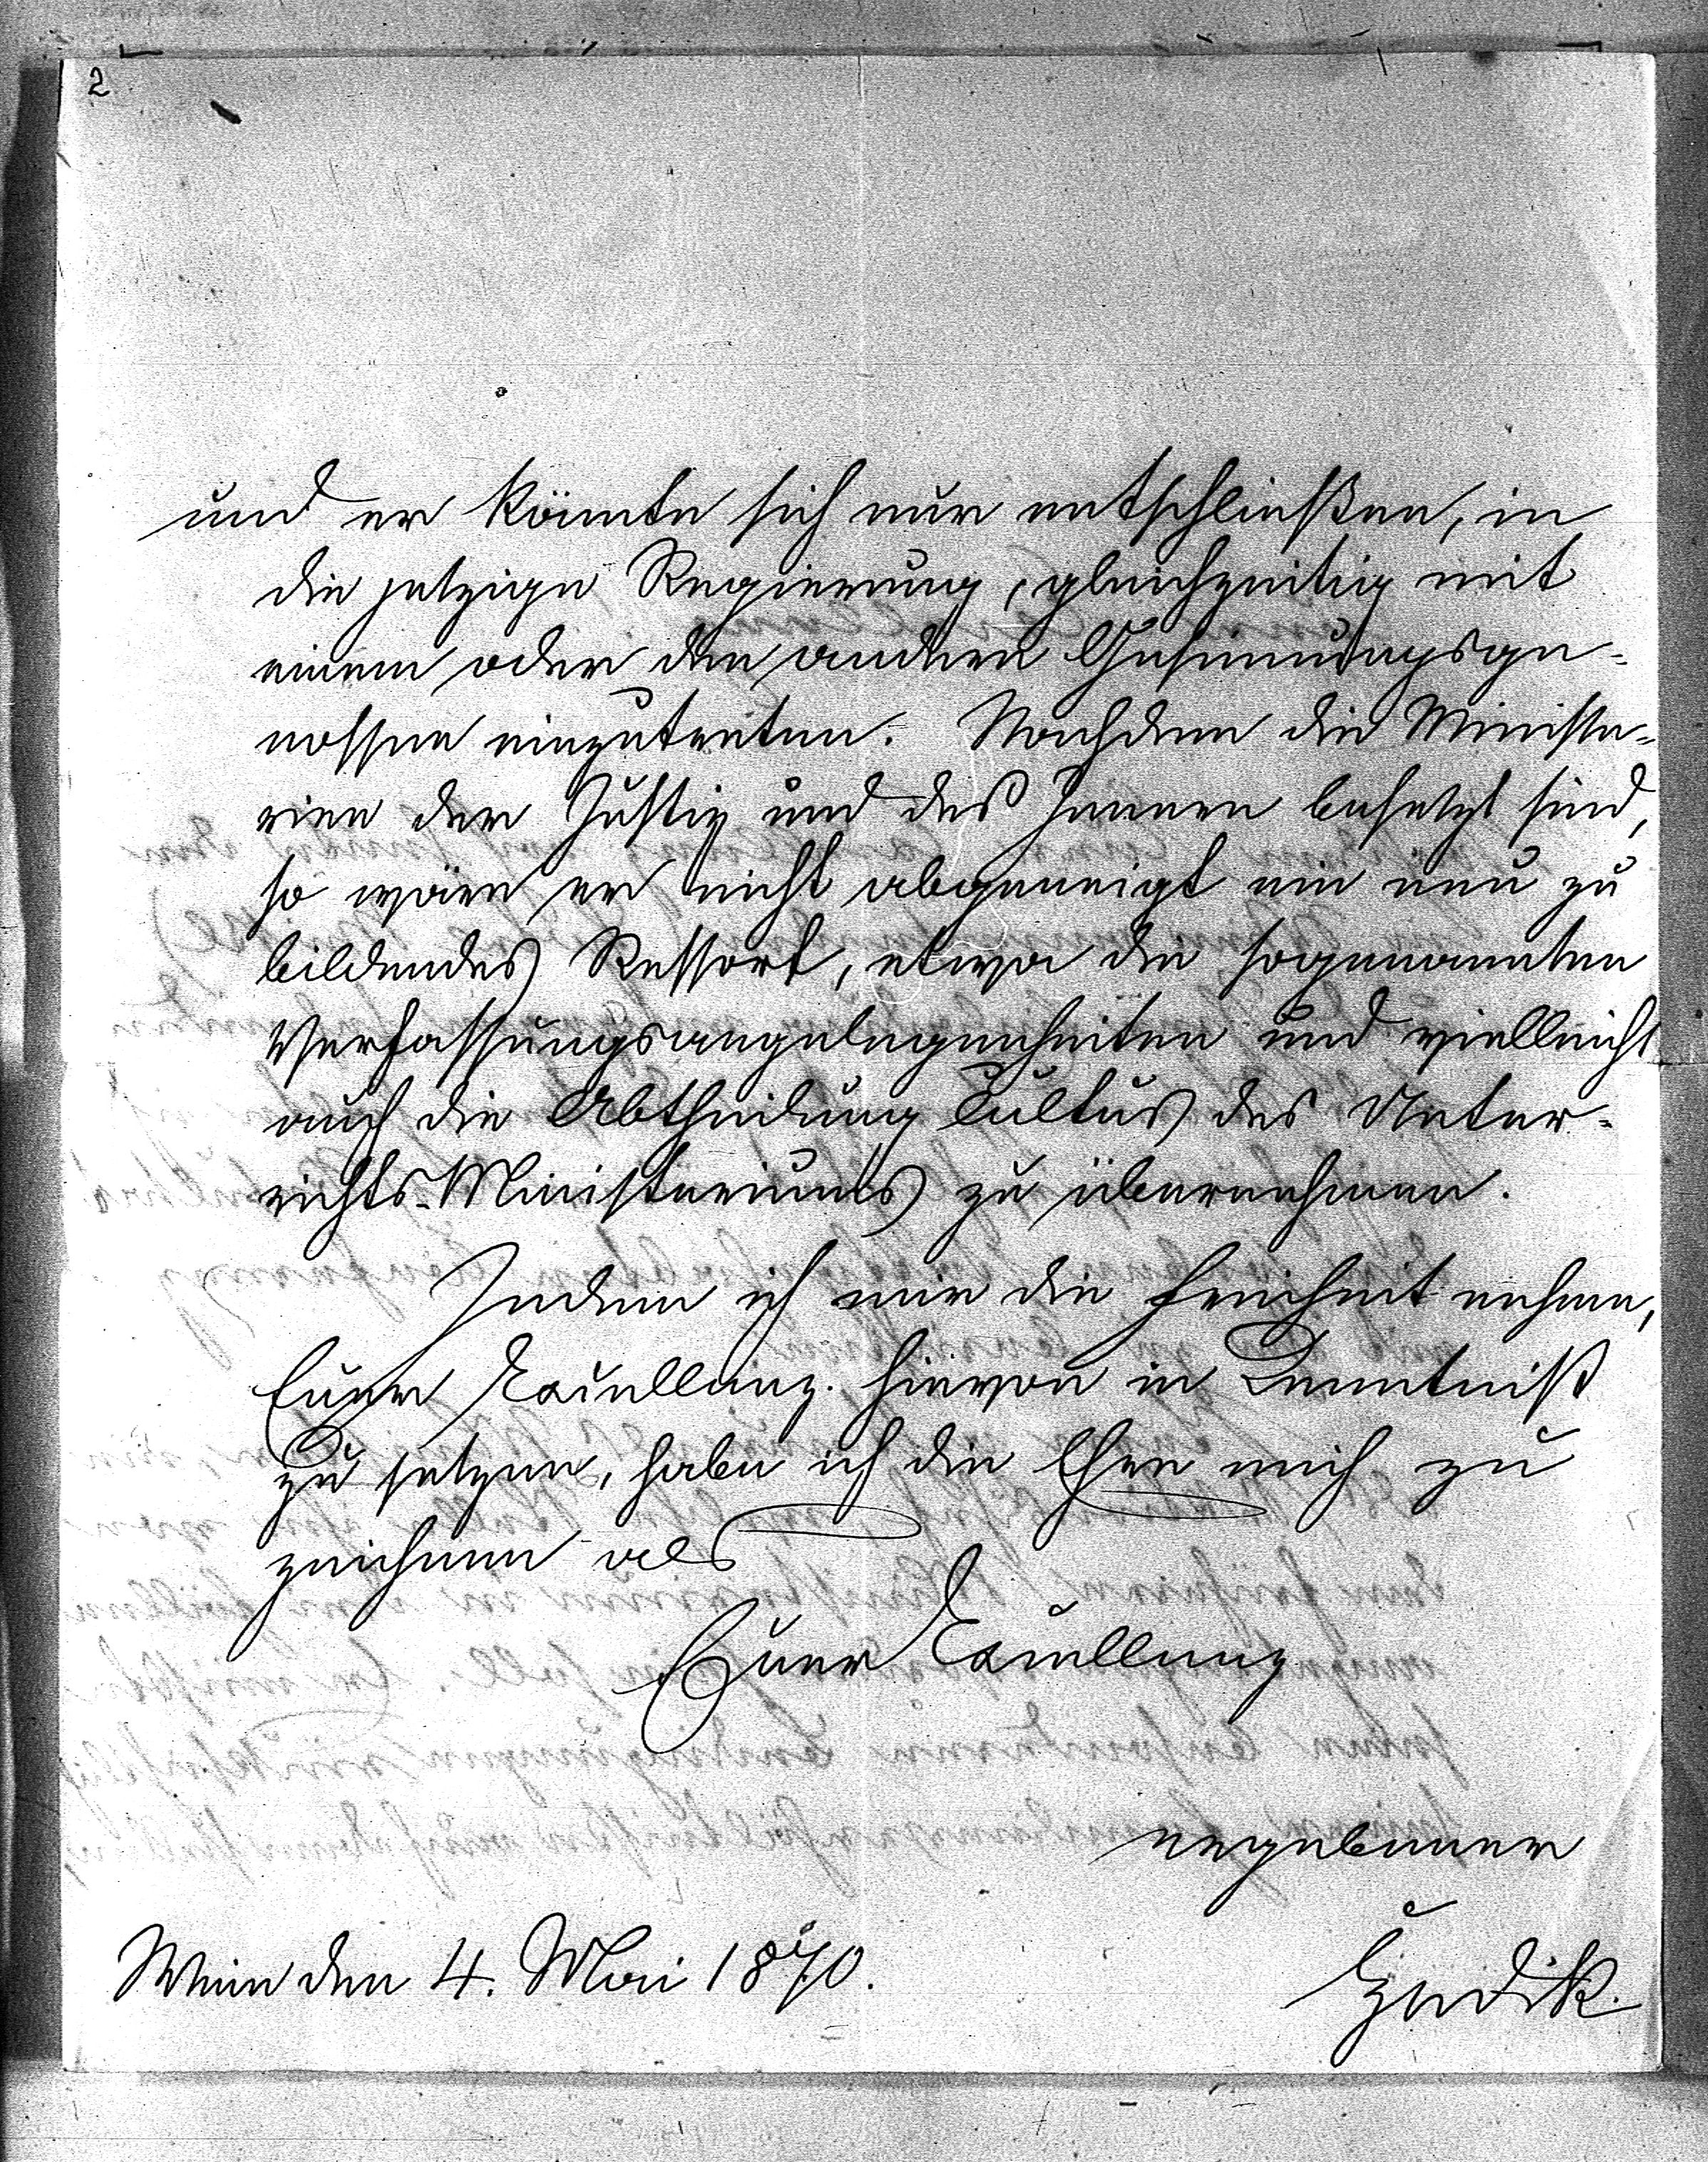 2
und er könnte sich nur entschließen, in
die jetzige Regierung, gleichzeitig mit
einem oder den andern Gesinnungsge-
nossen einzutreten. Nachdem die Ministe-
rien der Justiz und des Innern besetzt sind,
so wäre er nicht abgeneigt ein neu zu
bildendes Ressort, etwa die sogenannten
Verfassungsangelegenheiten und vielleicht
auch die Abtheilung Cultus des Unter-
richts-Ministeriums zu übernehmen.
Indem ich mir die Freiheit nehme,
Euer Excellenz hievon in Kenntniß
zu setzen, habe ich die Ehre mich zu
zeichnen als
Euer Excellenz
ergebener
Wien den 4. Mai 1870.